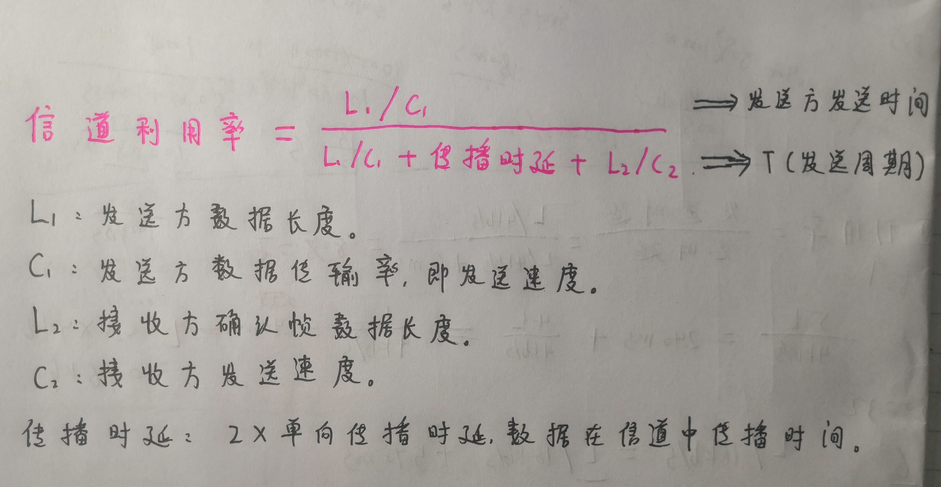 信道利用率 = L₁/C₁ / L₁/C₁ + 传播时延 + L₂/C₂
⇒ 发送方发送时间
⇒ T(发送周期)
L₁：发送方数据长度。
C₁：发送方数据传输率，即发送速度。
L₂：接收方确认帧数据长度。
C₂：接收方发送速度。
传播时延：2×单向传播时延，数据在信道中传播时间。